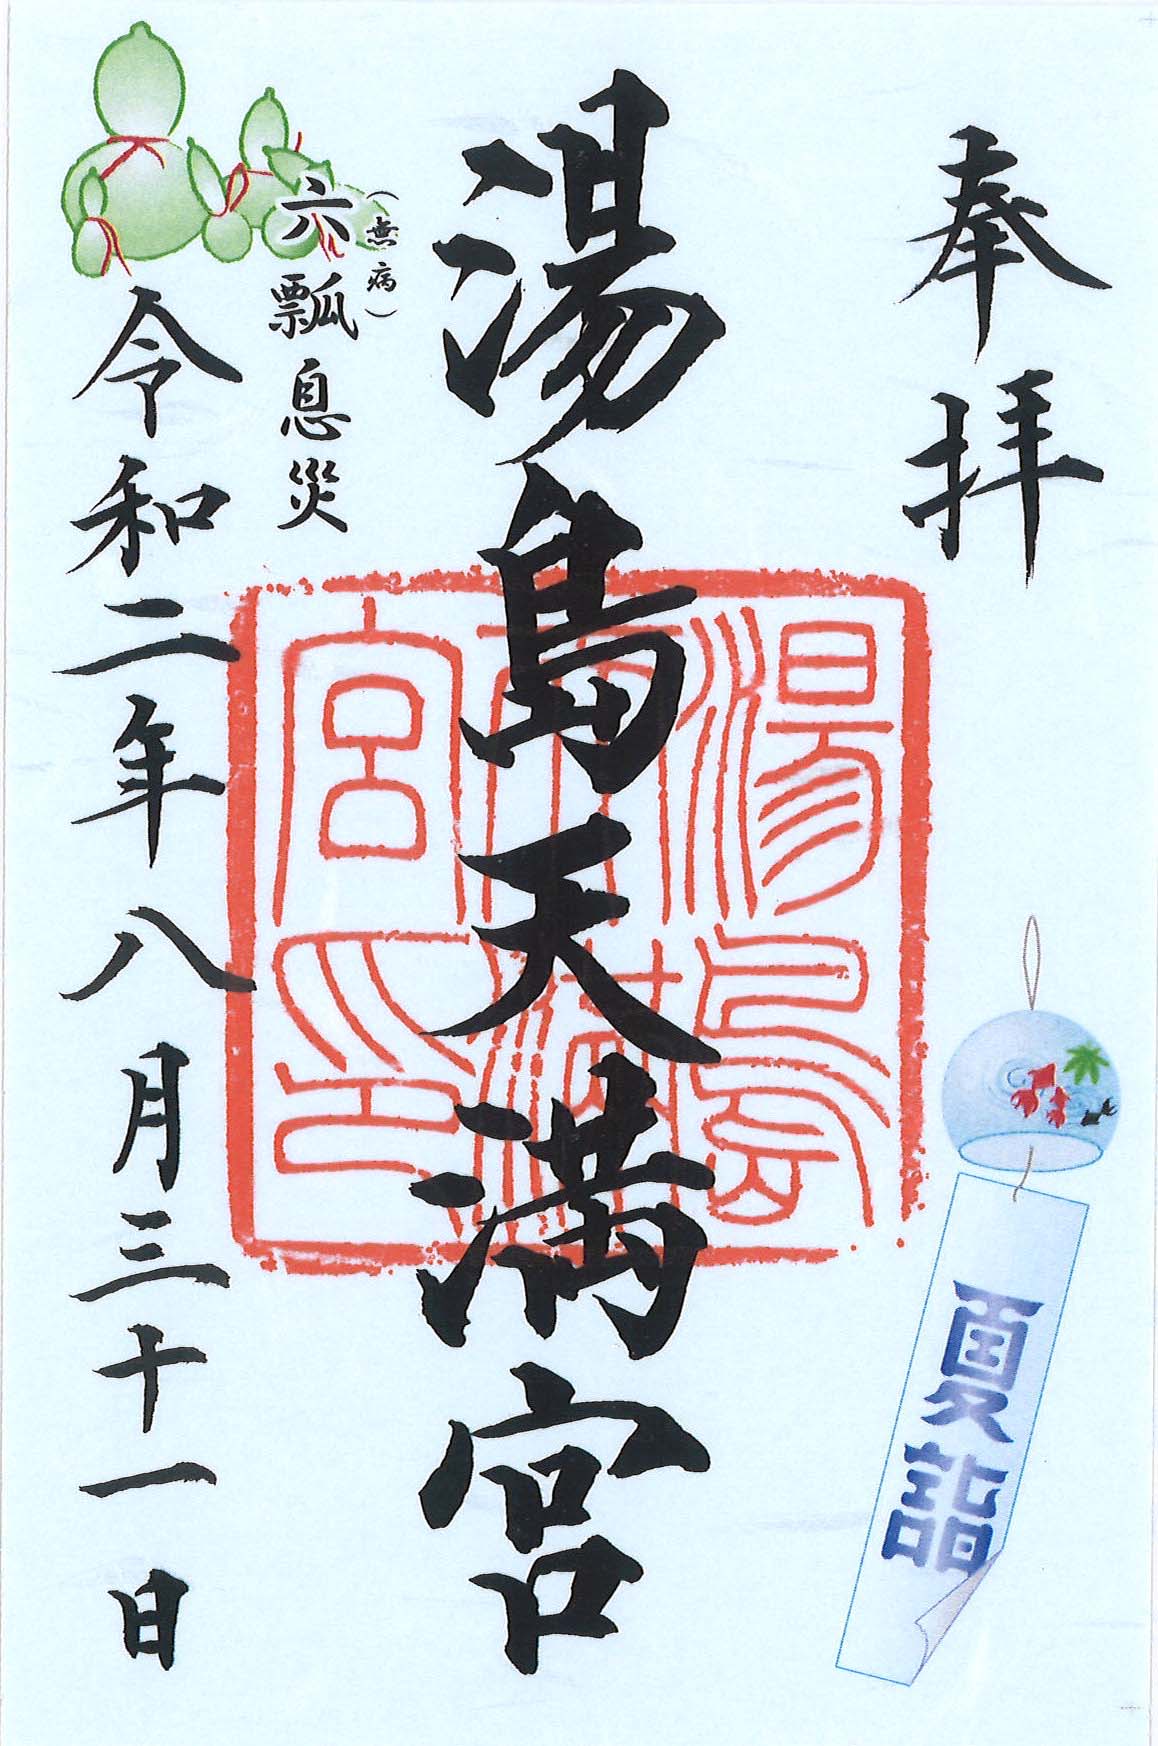 奉拝
夏詣
湯島天満宮
湯島天満宮印
（無病）
六瓢息災
令和二年八月三十一日